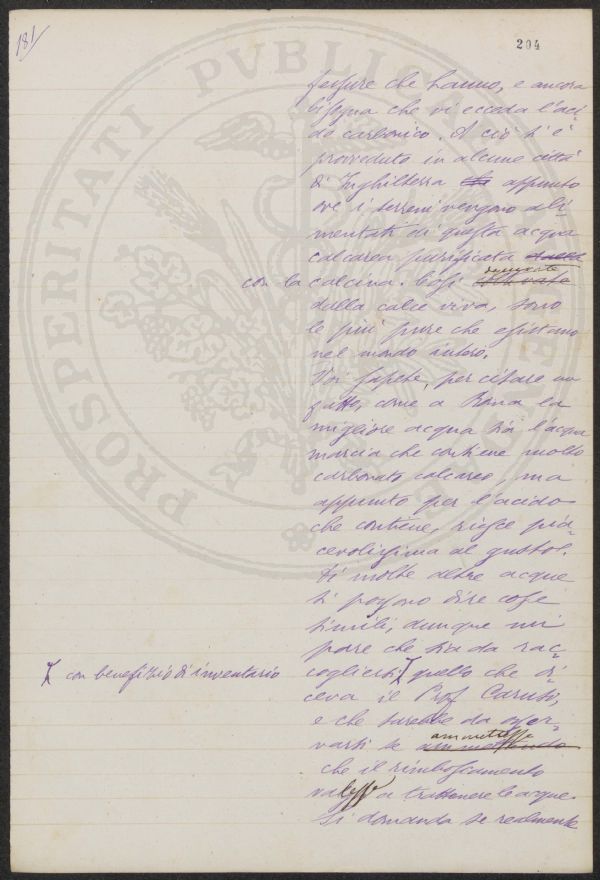 181/
204
fessure che hanno, e ancora
bisogna che vi ecceda l'aci-
do carbonico. A ciò si è
provveduto in alcune città
d'Inghilterra appunto
ove i terreni vengono ali-
mentati di questa acqua
calcarea purificata dalla
con la calcina. Così depurate
dalla calce viva, sono
le più pure che esistano
nel mondo intero.
Voi sapete, per citare un
fatto, come a Roma la
migliore acqua sia l'acqua
marcia che contiene molto
carbonato calcareo, ma
appunto per l'acido
che contiene, riesce pia-
cevolissima al gusto.
Di molte altre acque
si possono dire cose
simili, dunque mi
pare che sia da rac-
cogliersi quello che di-
con benefizio d'inventario
ceva il Prof Caruso,
e che sarebbe da osser-
varsi se ammettesse
ammettendo
che il rimboscamento
valesse a trattenere le acque.
Si domanda se realmente
PROSPERITATI PUBLICAE